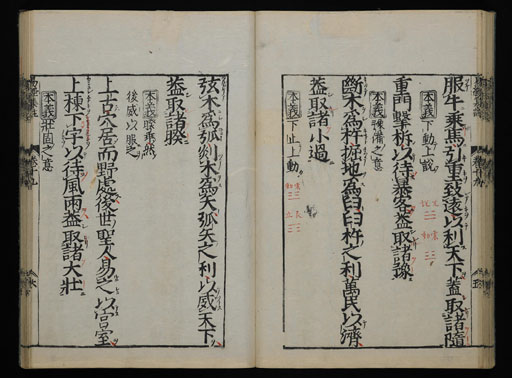 服牛乘馬引重致遠以利天下蓋取諸隨
本義下動上說
重門擊柝以待暴客蓋取諸豫
本義豫備之意
斷木爲杵掘地爲臼臼杵之利萬民以濟
蓋取諸小過
本義下止上動
弦木爲弧剡木爲矢弧矢之利以威天下
蓋取諸睽
本義睽乖然
後威以服之
上古穴居而野處後世聖人易之以宮室
上棟下宇以待風雨蓋取諸大壯
本義壯固之意